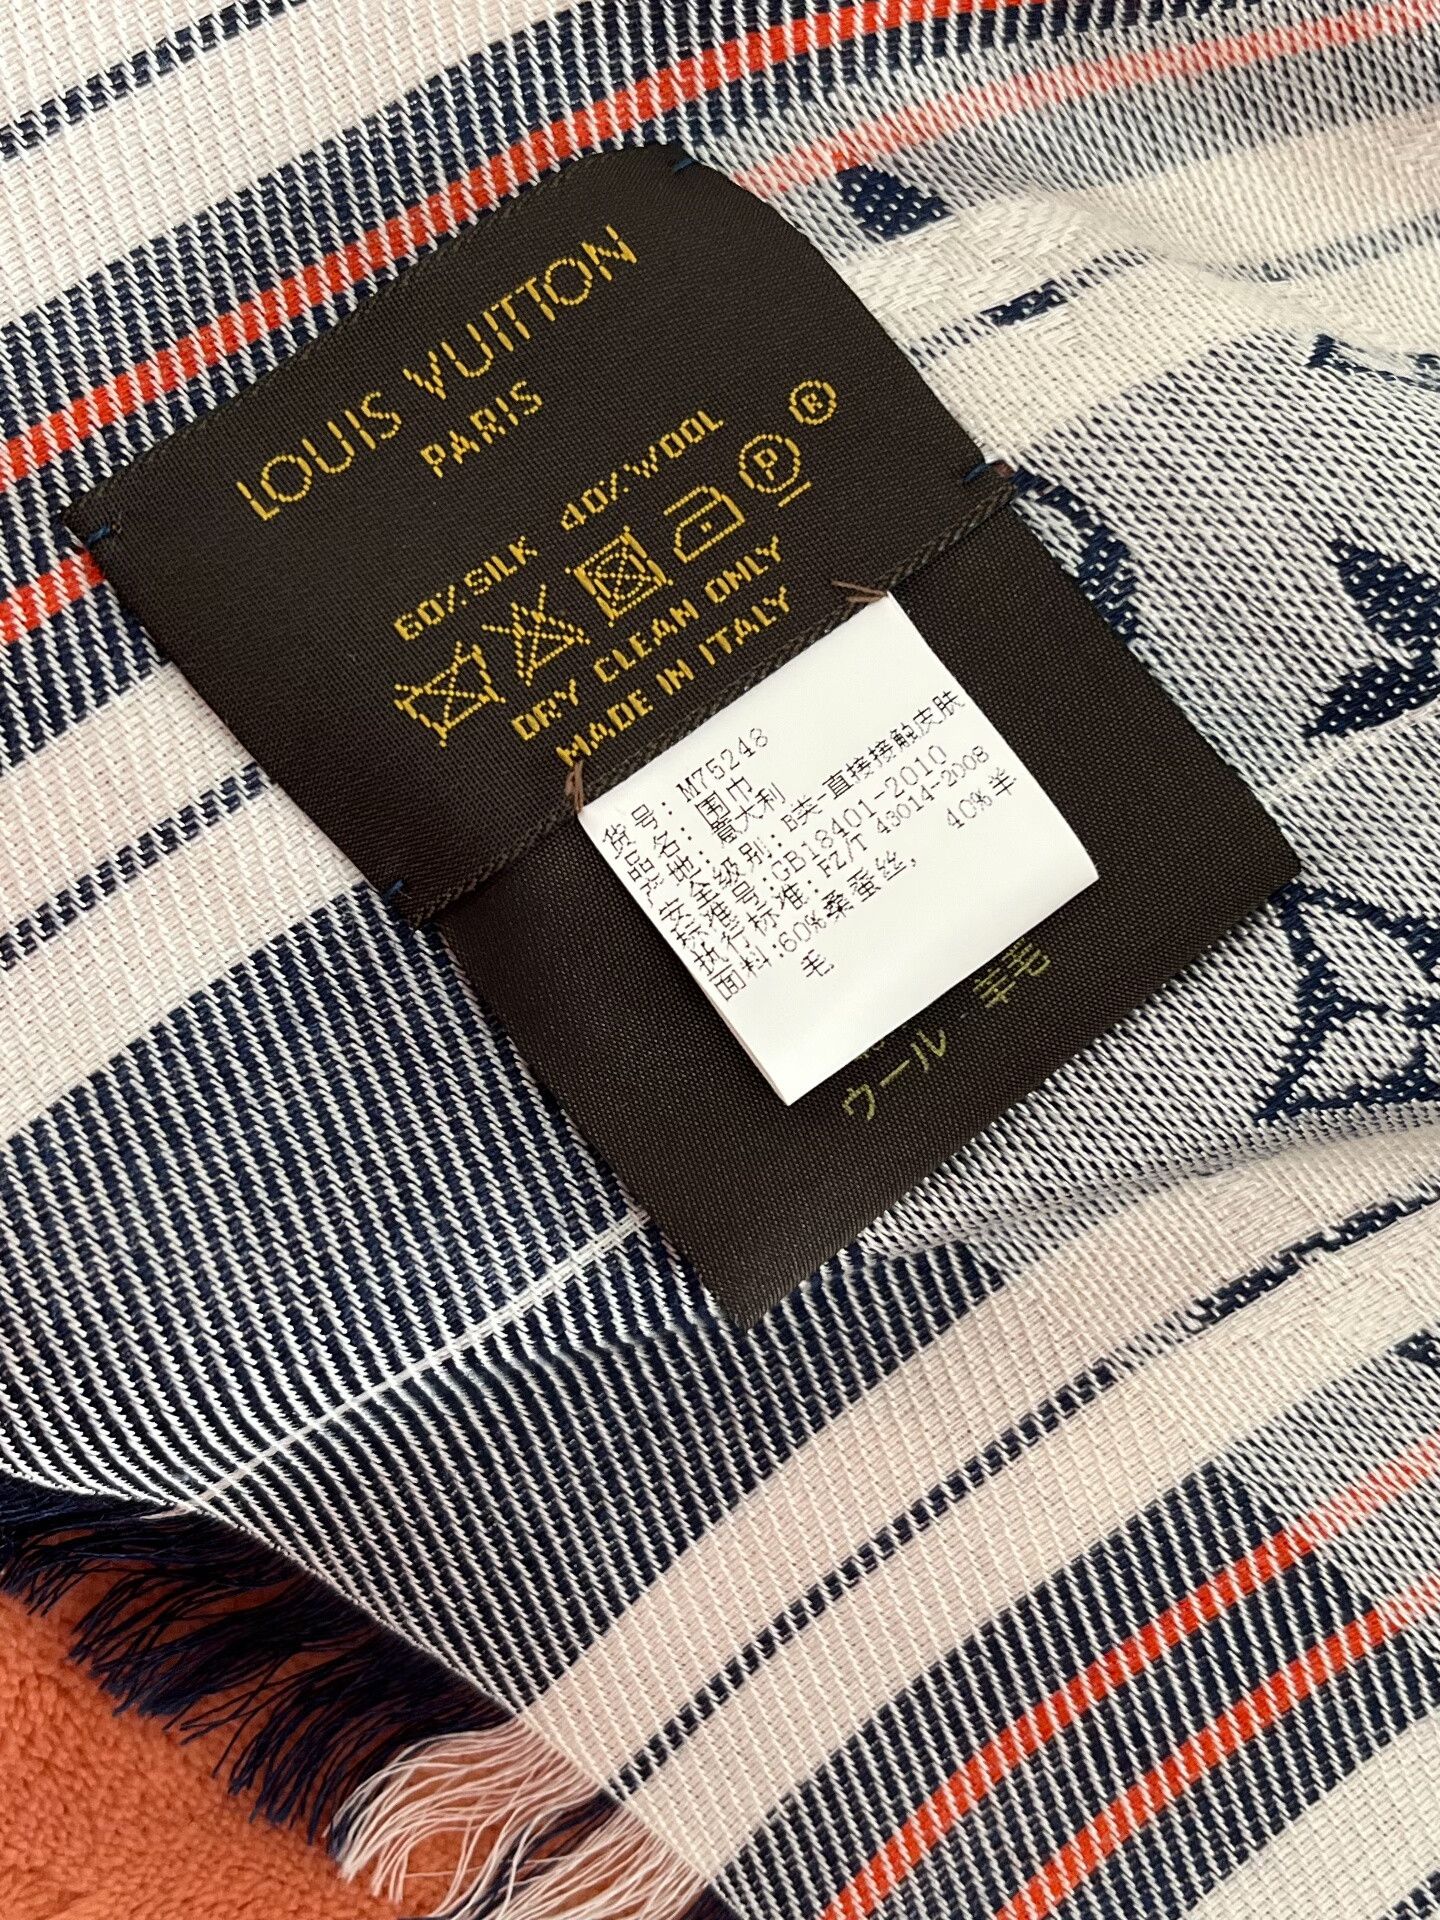 LOUIS VUITTON
PARIS
60% SILK 40% WOOL
P
DRY CLEAN ONLY
MADE IN ITALY
货号:M75248
品名:围巾
意大利
安全级别:B类-直接接触皮肤
标准号:GB18401-2010
执行标准:FZ/T 43014-2008
面料:60%桑蚕丝, 40%羊
毛
ウール 羊毛